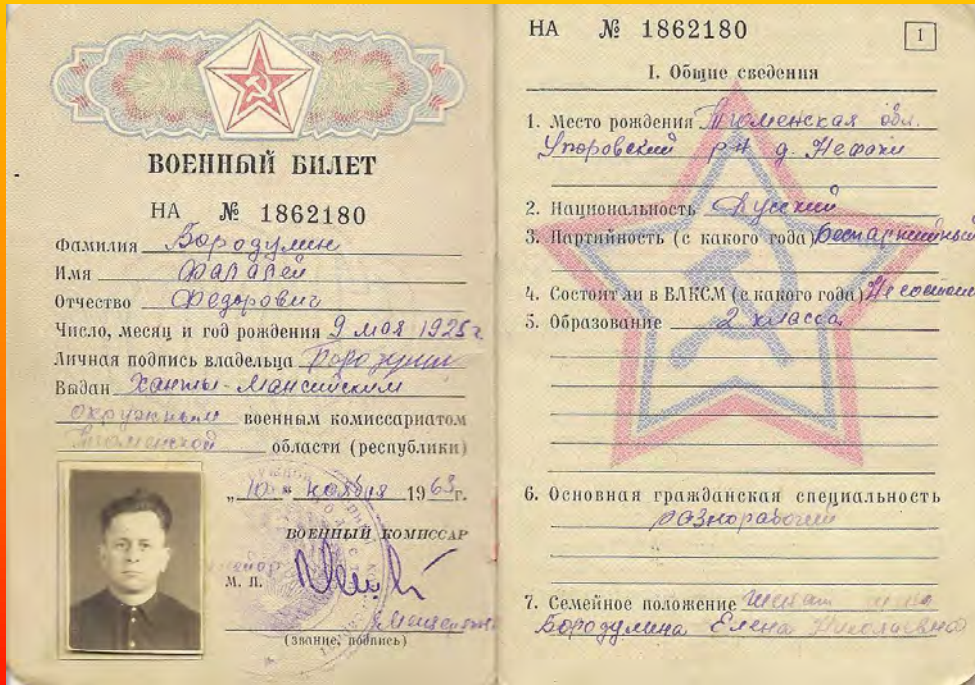 ВОЕННЫЙ БИЛЕТ
НА № 1862180
Фамилия Бородулин
Имя Фалалей
Отчество Федорович
Число, месяц и год рождения 9 мая 1925 г
Личная подпись владельца Бородулин
Выдан Ханты-Мансийским
окружным военным комиссариатом
Тюменской области (республики)
„10" ноября 1963 г.
ВОЕННЫЙ КОМИССАР
М. П.
(звание, подпись)
НА № 1862180
1
I. Общие сведения
1. Место рождения Тюменская обл.
Упоровский р-н д.
2. Национальность Русский
3. Партийность (с какого года) беспартийный
4. Состоит ли в ВЛКСМ (с какого года) Не состоит
5. Образование 2 класса
6. Основная гражданская специальность
разнорабочий
7. Семейное положение Женат жена
Бородулина Елена Николаевна